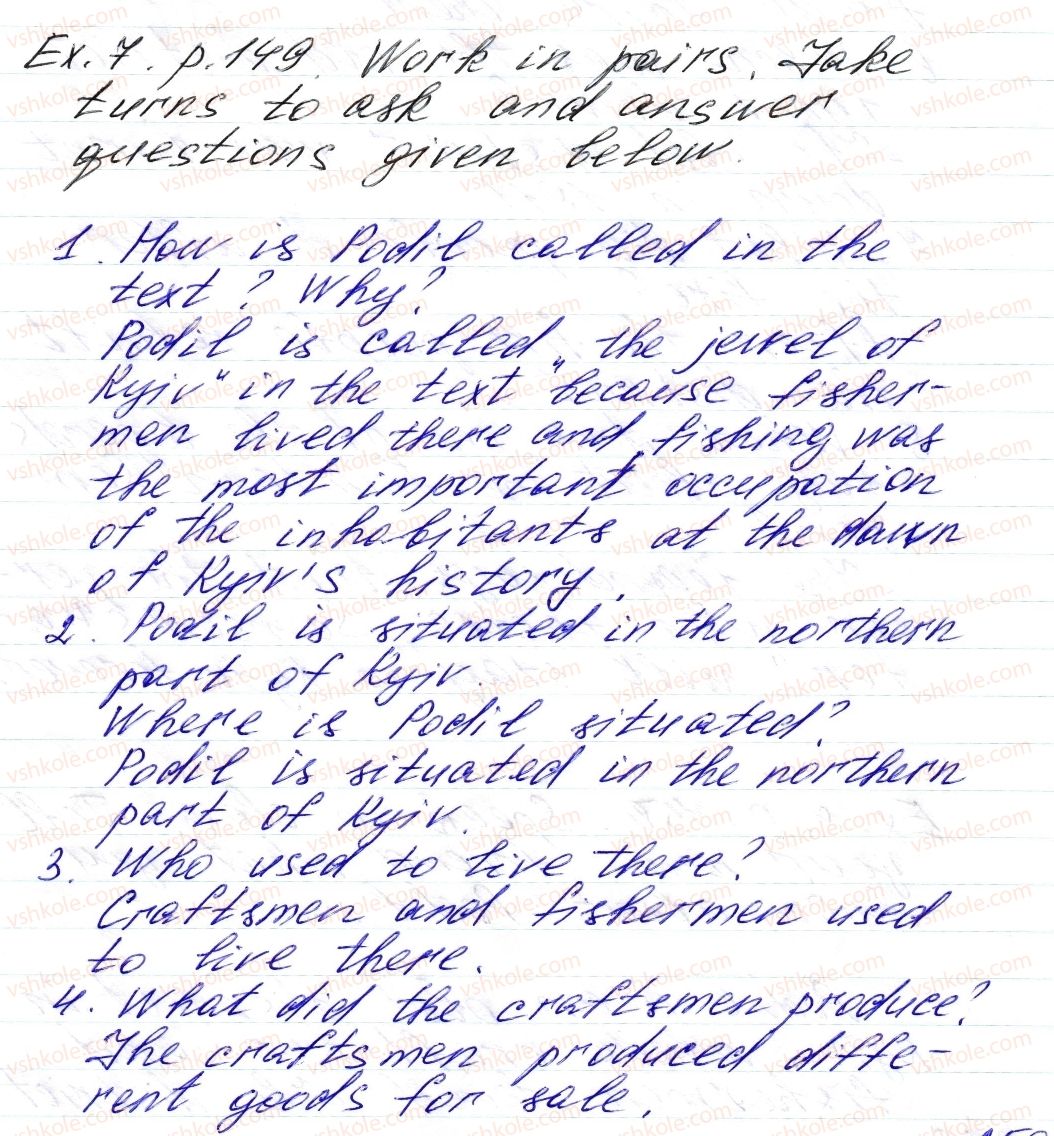 Ex. 7. p. 149. Work in pairs. Take
turns to ask and answer
questions given below.
1. How is Podil called in the
text? Why?
Podil is called „the jewel of
Kyiv" in the text because fisher-
men lived there and fishing was
the most important occupation
of the inhabitants at the dawn
of Kyiv's history.
2. Podil is situated in the northern
part of Kyiv.
Where is Podil situated?
Podil is situated in the northern
part of Kyiv.
3. Who used to live there?
Craftsmen and fishermen used
to live there.
4. What did the craftsmen produce?
The craftsmen produced diffe-
rent goods for sale.
vshkole.com